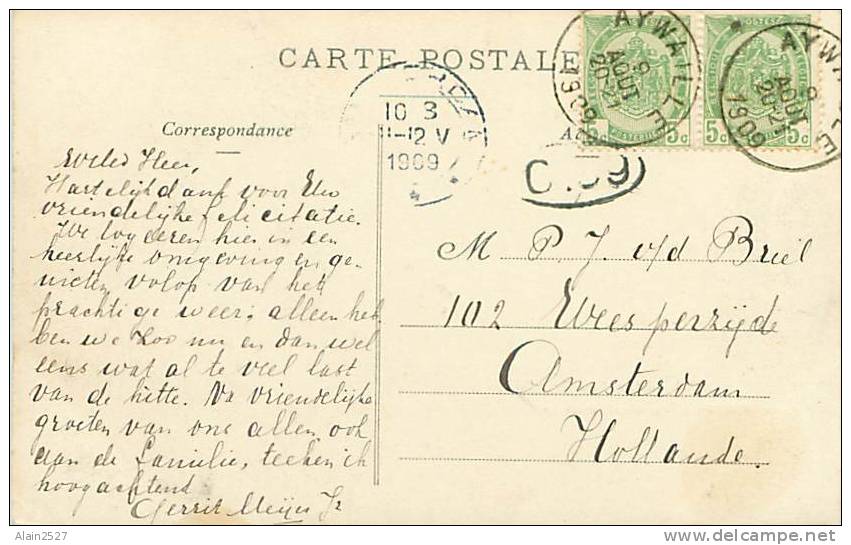 CARTE POSTALE
Correspondance
AYWAILLE
9
AOUT
20-21
1909
AYWAILLE
9
AOUT
20-21
1909
5c 5c
5c 5c
10 3
11-12 V
1909
Weled Heer,
Hartelijk dank voor Uw
vriendelijke felicitatie.
We logeeren hier in een
heerlijke omgeving en ge-
nieten volop van het
prachtige weer: alleen heb
ben we zoo nu en dan wel
eens wat al te veel last
van de hitte. Na vriendelijke
groeten van ons allen ook
aan de familie, teeken ik
hoogachtend
Gerrit Meijer Jr
M P. J. v/d Briel
102 Weesperzijde
Amsterdam
Hollande.
Alain2527
delcampe.net